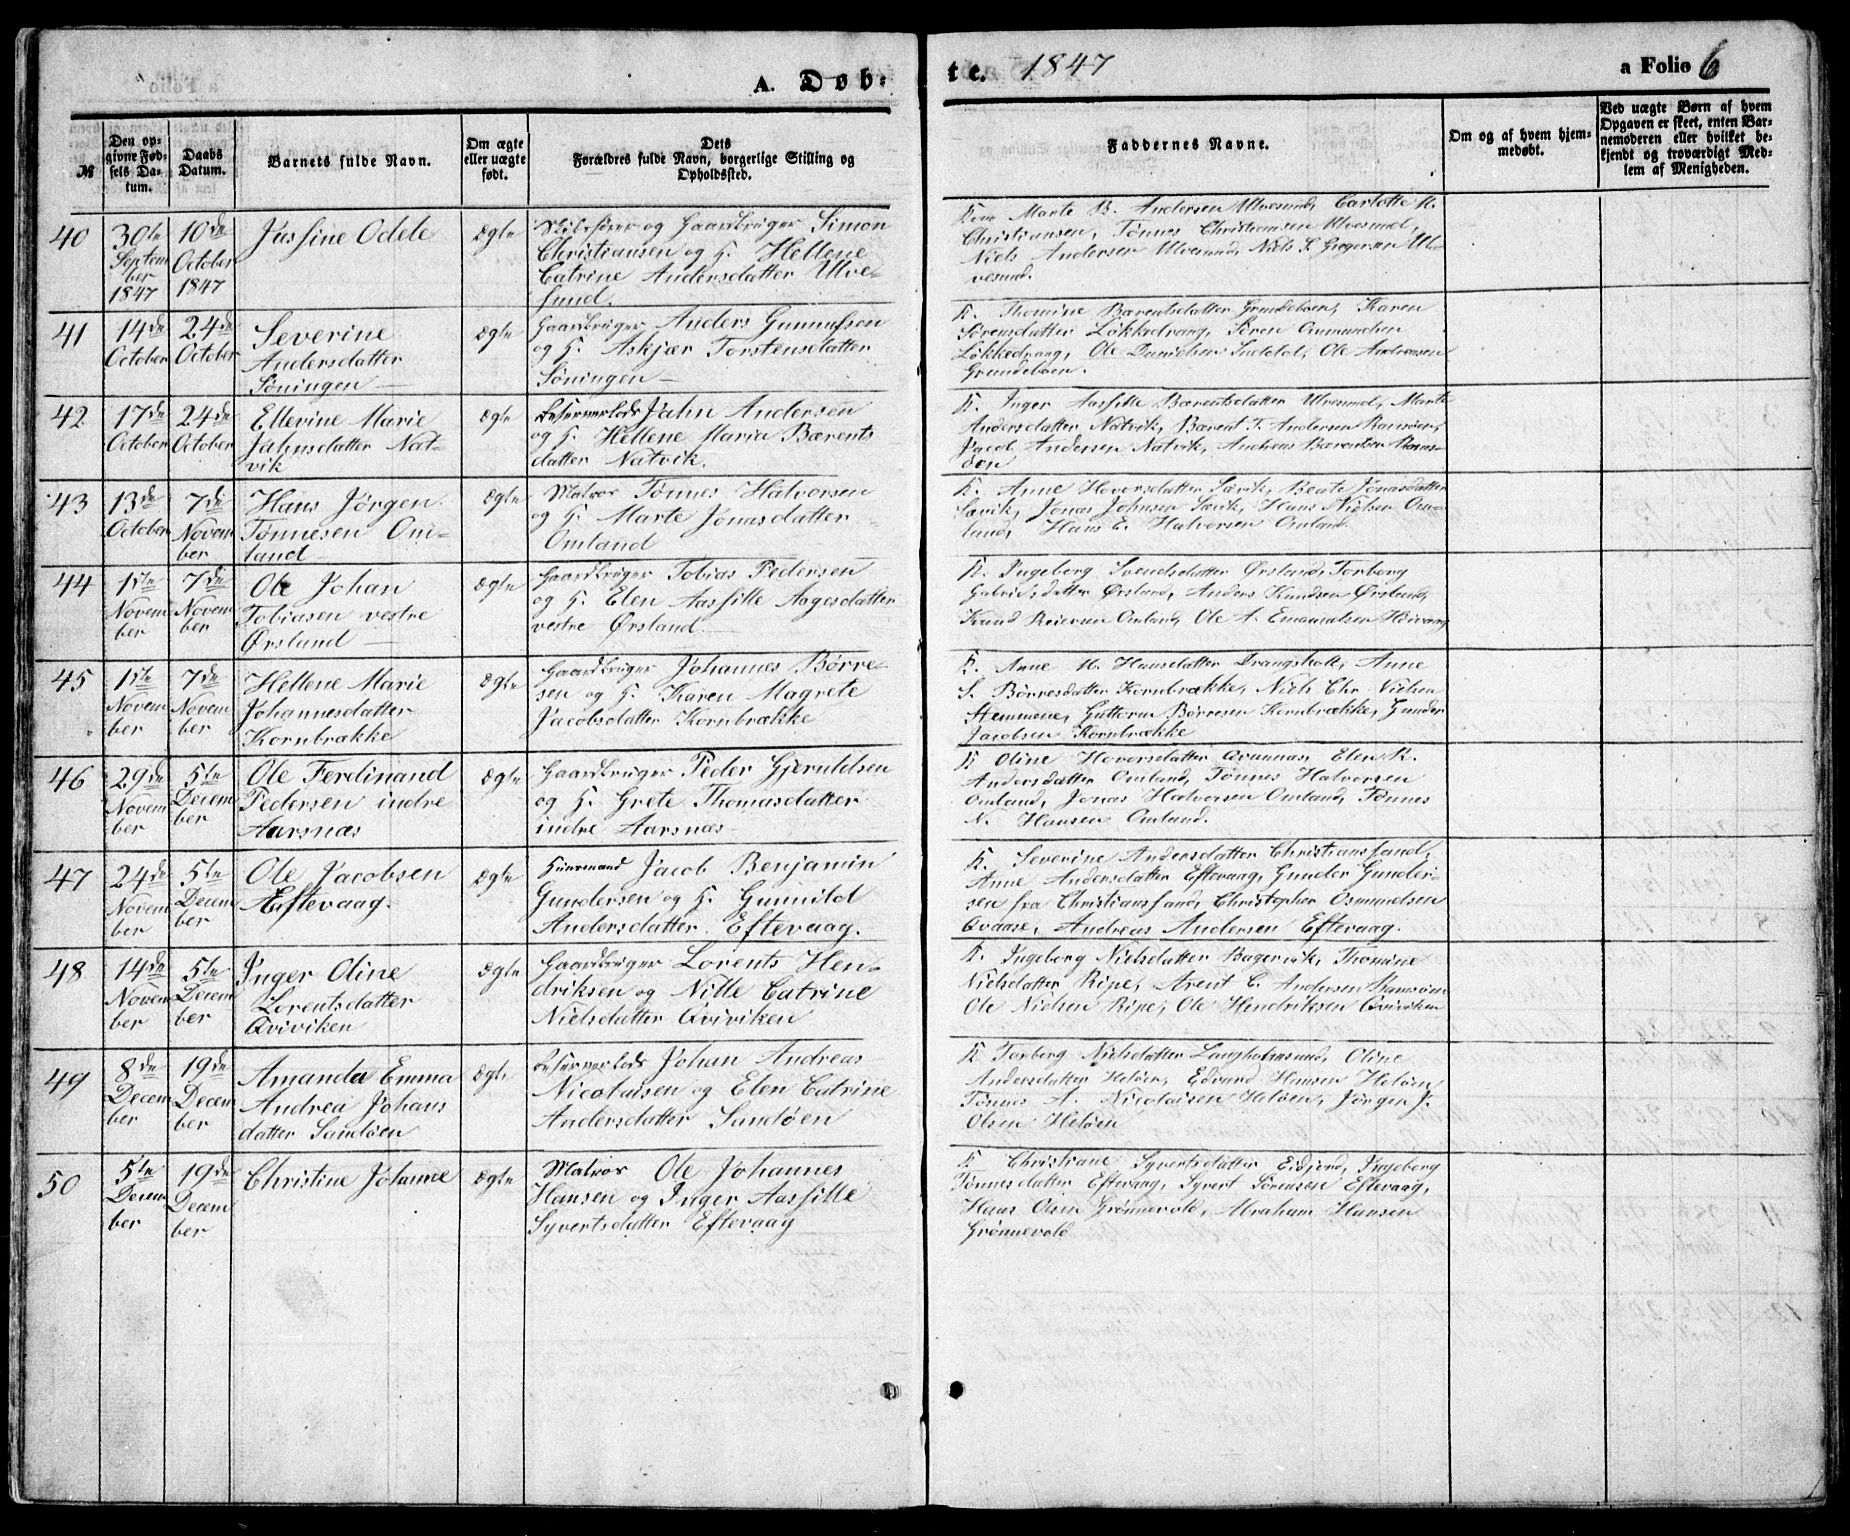 A. Døb-
te. 1847
a Folio 6
№
Den op-
givne Fød-
sels Da-
tum.
Daabs
Datum.
Barnets fulde Navn.
Om ægte
eller uægte
født.
Dets
Forældres fulde Navn, borgerlige Stilling og
Opholdssted.
Faddernes Navne.
Om og af hvem hjem-
medøbt.
Ved uægte Børn af hvem
Opgaven er skeet, enten Bar-
nemoderen eller hvilket be-
kjendt og troværdigt Med-
lem af Menigheden.
40
30te
Septem
ber
1847
10de
October
1847
Jassine Odele
ægte
Skibsfører og Gaardbruger Simon
Christiansen og H. Hellene
Catrine Andersdatter Ulve-
sund.
Marte B. Andersen Ulvesund, Carlotte
Christiansen, Tønnes Christiansen Ulvesund,
Niels Andersen Ulvesund, Niels S. Gregersen Ul-
vesund.
41
14de
October
24de
October
Severine
Andersdatter
Søningen
ægte
Gaardbruger Anders Gunnufsen
og H. Askjær Torstensdatter
Søningen
K. Thomine Bærentsdatter Grundeboen, Karen
Sørensdatter Løkkedrang, Søren Osmundsen
Løkkedrang, Ole Danielsen, Ole Andreasen
Grundeboen.
42
17de
October
24de
October
Ellerine Marie
Jahnsdatter Nat-
vik
ægte
Reserverlods Jahn Andersen
og H. Hellene Maria Bærents
datter Natvik.
K. Inger Aassille Bærentsdatter Ulvesund, Marte
Andersdatter Natvik, Bærent T. Andersen Ramsøen,
Jacob Andersen Natvik, Andreas Bærentsen Rams-
øen
43
13de
October
7de
Novem
ber
Hans Jørgen
Tønnesen Om-
land
ægte
Matros Tønnes Halvorsen
og H. Marte Jonasdatter
Omland
K. Anne Hoversdatter Sævik, Beate Jonasdatter
Sævik, Jonas Johnsen Sævik, Hans Nielsen Om-
land, Hans E. Halvorsen Omland.
44
1ste
Novem
ber
7de
Novem
ber
Ole Johan
Tobiasen vestre
Ørsland
ægte
Gaardbruger Tobias Pedersen
og H. Elen Aassille Aagesdatter
vestre Ørsland
K. Ingeborg Svendsdatter Ørsland, Torborg
Gabrielsdatter Ørsland, Anders Knudsen Ørsland,
Knud Reiersen Omland, Ole A. Emanuelsen Høivang
45
1ste
Novem
ber
7de
Novem
ber
Hellene Marie
Johannesdatter
Kornbrække
ægte
Gaardbruger Johannes Børre-
sen og H. Karen Magrete
Jacobsdatter Kornbrække
K. Anne M. Hansdatter Drangsholt, Anne
S. Børresdatter Kornbrække, Niels Chr. Nielsen
Stemmene, Guttorm Børresen Kornbrække, Gunder
Jacobsen Kornbrække
46
29de
Novem
ber
5te
Decem
ber
Ole Ferdinand
Pedersen indre
Aarsnæs
ægte
Gaardbruger Peder Gjeruldsen
og H. Grete Thomasdatter
indre Aarsnæs
K Oline Hoversdatter Qvannas, Elen K.
Andersdatter Omland, Tønnes Halvorsen
Omland, Jonas Halvorsen Omland, Tønnes
N. Hansen Omland.
47
24de
Novem
ber
5te
Decem
ber
Ole Jacobsen
Eftevaag.
ægte
Huusmand Jacob Benjamin
Gundersen og H. Gunnild
Andersdatter Eftevaag.
K. Severine Andersdatter Christianssand,
Anne Andersdatter Eftevaag, Gunder Gunder-
sen fra Christianssand, Christopher Osmundsen
Qvaase, Andreas Andersen Eftevaag.
48
14de
Novem
ber
5te
Decem
ber
Inger Oline
Lorentsdatter
Qviviken
ægte
Gaardbruger Lorents Hen-
driksen og Nille Catrine
Nielsdatter Qviviken
K. Ingeborg Nielsdatter Bagervik, Thomine
Nielsdatter Ripe, Arent C. Andersen Ramsøen
Ole Nielsen Ripe, Ole Hendriksen Qviviken
49
8de
Decem
ber
19de
Decem
ber
Amanda Emma
Andrea Johans
datter Sandøen
ægte
Reserverlods Johan Andreas
Nicolaisen og Elen Catrine
Andersdatter Sandøen
K Torborg Nielsdatter Langholmsund, Oline
Andersdatter Heløen, Edvard Hansen Heløen
Tønnes A. Nicolaisen Heløen, Jørgen J.
Olsen Heløen
50
5te
Decem
ber
19de
Decem
ber
Christine Johanne
ægte
Matros Ole Johannes
Hansen og Inger Aassille
Syvertsdatter Eftevaag
K Christiane Syvertsdatter Eidjord, Ingeborg
Tønnesdatter Eftevaag, Syvert Sørensen Eftevaag,
Hans Olsen Grønnevold, Abraham Hansen
Grønnevold